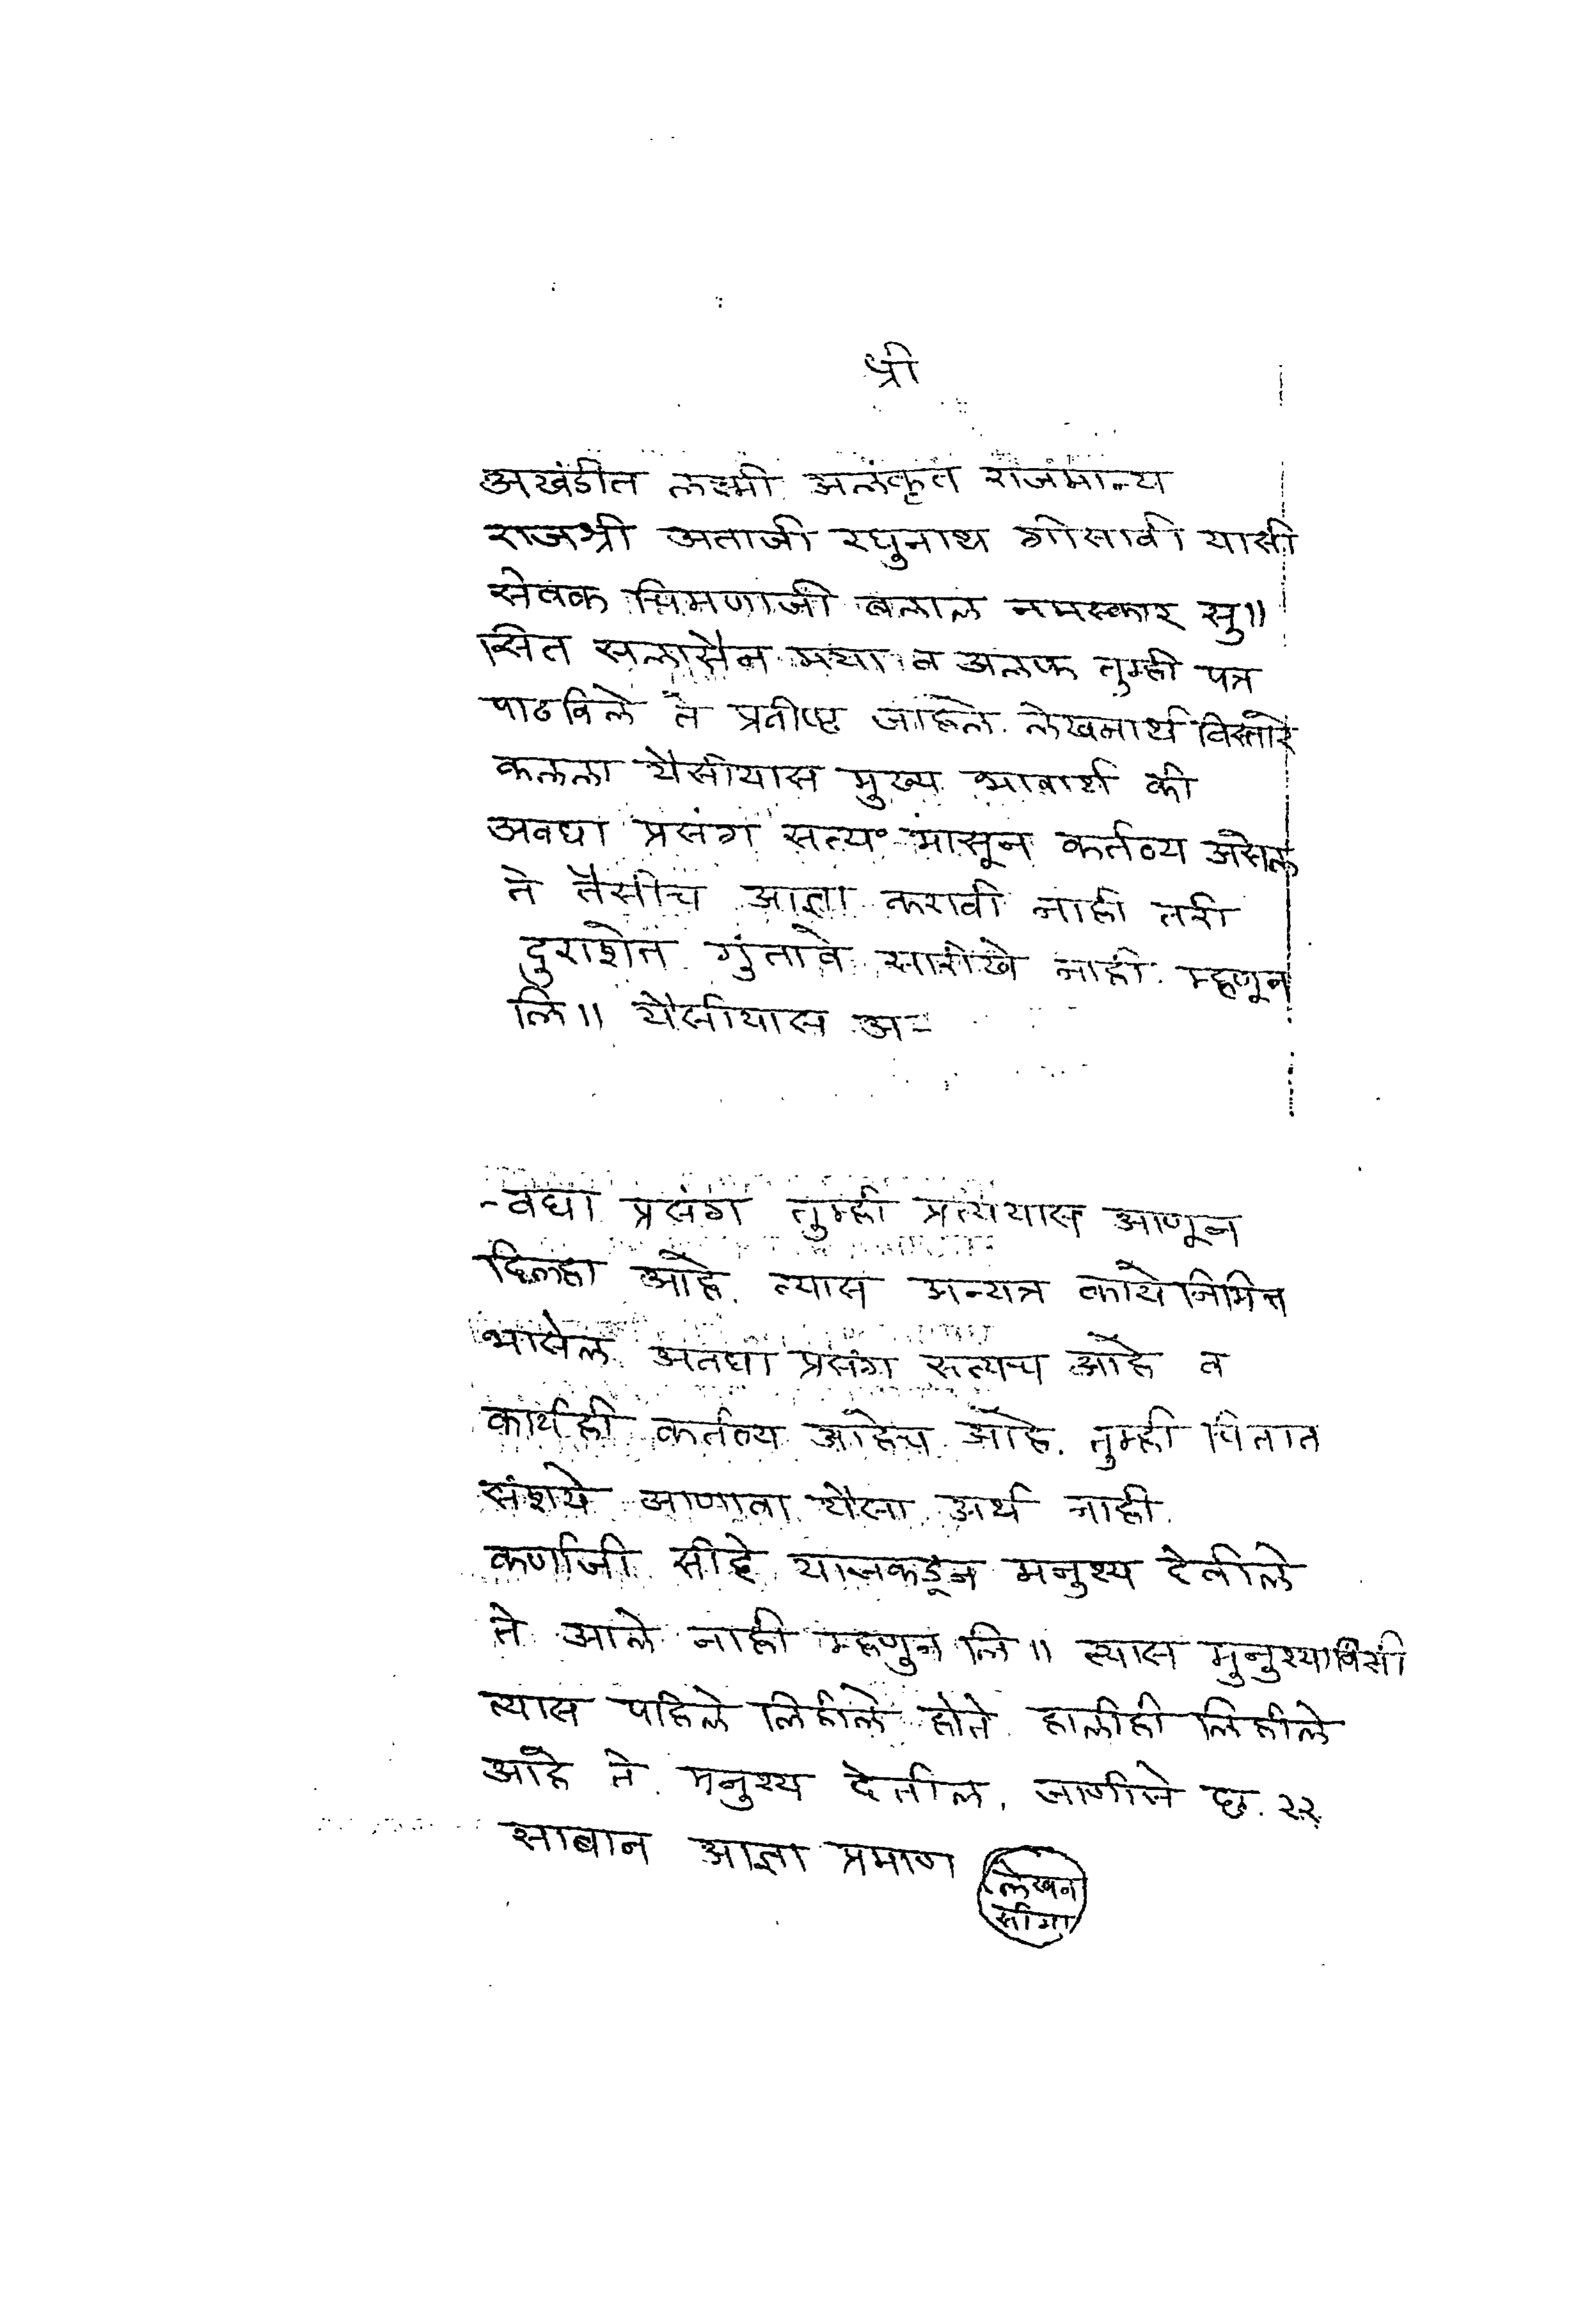 श्री
अखंडीत लक्ष्मी अलंकृत राजमान्य
राजश्री अताजी रघुनाथ गोसावी यासी
सेवक चिमणाजी बलाल नमस्कार सु॥
सित सलासैन मया व अलफ तुम्ही पत्र
पाठविले ते प्रतीष्ट जाहले. लेखनार्थ विस्तारे
कलला यैसीयास मुख्य भावार्थ की
अवघा प्रसंग सत्य भासून कर्तव्य असेल
ते तैसीच आज्ञा करावी नाही तरी
दुराशेत गुंतावे सारीखे नाही. म्हणून
लि॥ यैसीयास अ-
-वघा प्रसंग तुम्ही प्रत्ययास आणून
दिल्हा आहे. त्यास अन्यत्र काये निमित्त
भासेल अवघा प्रसंग सत्यच आहे व
कार्यही कर्तव्य आहेच आहे. तुम्ही चितात
संशये आणावा यैसा अर्थ नाही.
कर्णाजी सीदे याजकडून मनुश्य देवीले
ते आले नाही म्हणुन लि॥ त्यास मुनुश्याविसी
त्यास पहिले लिहीले होते हालीही लिहीले
आहे ते मनुश्य देतील. जाणीजे छ. २२
साबान आज्ञा प्रमाण
लेखन
सीमा